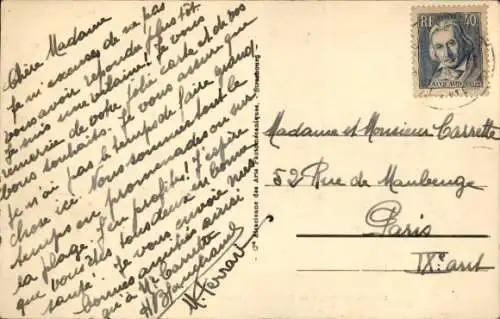 Chère Madame
Je m'excuse de ne pas
vous avoir répondu plus tôt.
Je suis une vilaine! Je vous
remercie de votre jolie carte et de vos
bons souhaits. Je vous assure que
je n'ai pas le temps de faire grand
chose ici. Nous sommes tout le
temps en promenades ou sur
la plage. J'en profite! J'espère
que vous êtes tous deux en bonne
santé! Je vous envoie mes
bonnes amitiés ainsi
qu'à Mr Carretta
M. Ferrari
Cie Alsacienne des Arts Photomécaniques, Strasbourg
RF 40c
Madame et Monsieur Carretta
52 Rue de Maubeuge
Paris
IXe arrt